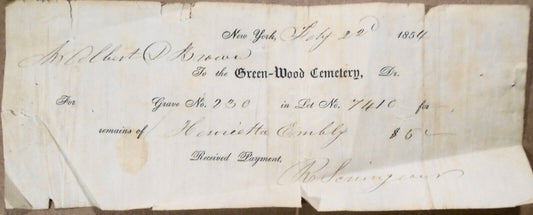 New York, Feby 22d 1854
Mr Albert D Brown
To the Green-Wood Cemetery, Dr.
For Grave No. 230 in Lot No. 7410 for
remains of Henrietta Embly $6
Received Payment,